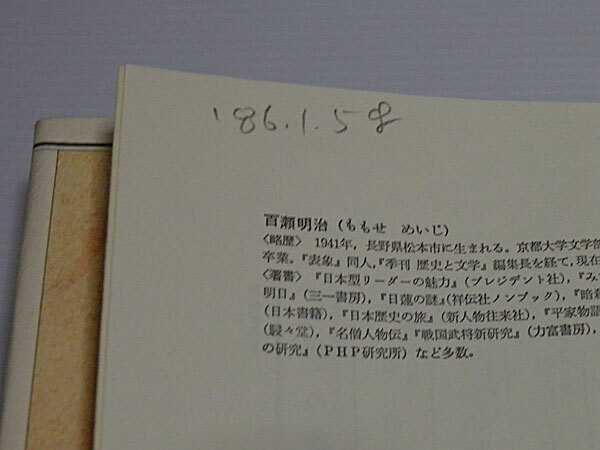 '86.1.5
百瀬明治（ももせ めいじ）
〈略歴〉 1941年，長野県松本市に生まれる。京都大学文学部
卒業。『表象』同人，『季刊 歴史と文学』編集長を経て，現在
〈著書〉『日本型リーダーの魅力』（プレジデント社），『み
明日』（三一書房），『日蓮の謎』（祥伝社ノンブック），『暗殺
（日本書籍），『日本歴史の旅』（新人物往来社），『平家物語
（駸々堂），『名僧人物伝』『戦国武将新研究』（力富書房），
の研究』（ＰＨＰ研究所）など多数。